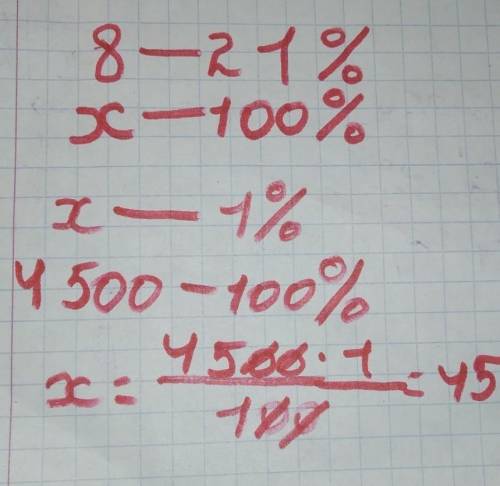 8 — 21%
x — 100%
x — 1%
4500 - 100%
x = 4500 · 1 / 100 = 45